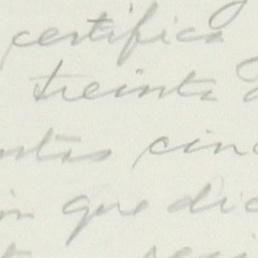 certifica
treinta
ntas cinc
ón que dic